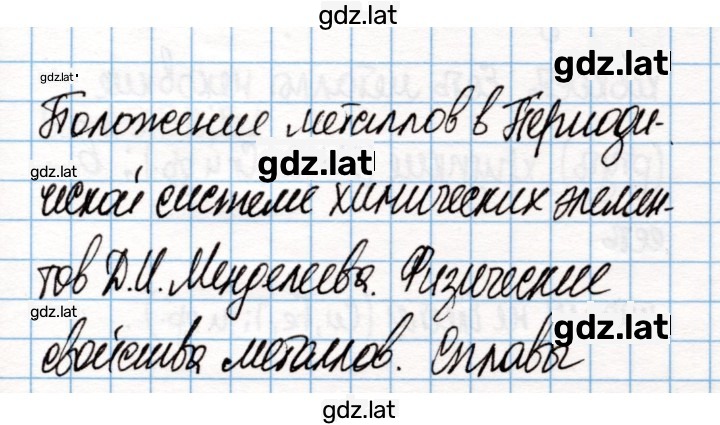 gdz.lat
gdz.lat
gdz.lat
Положение металлов в Периоди-
gdz.lat
gdz.lat
ческой системе химических элемен-
тов Д.И. Менделеева. Физические
gdz.lat
gdz.lat
свойства металлов. Сплавы
gdz.lat